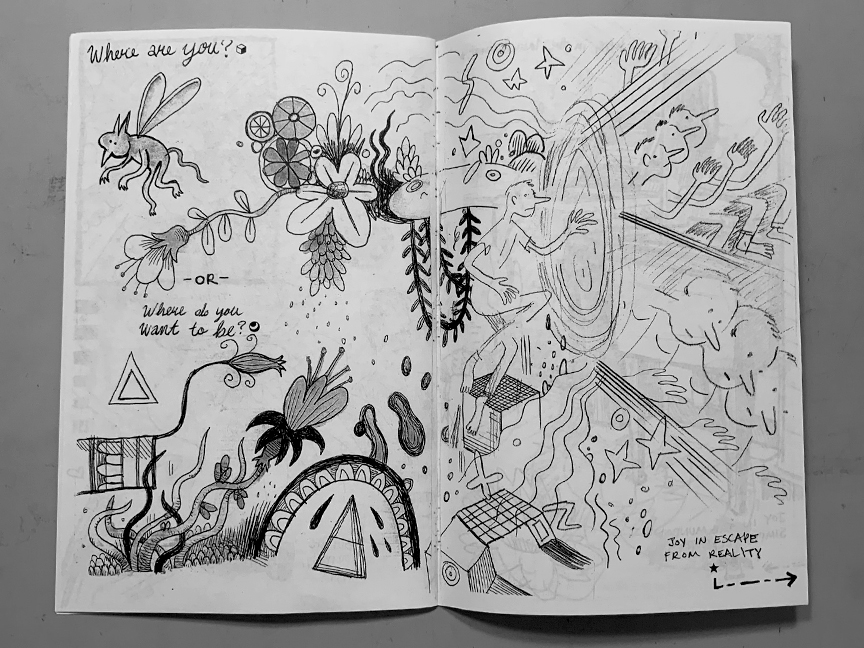 Where are you?
-OR-
Where do you
want to be?
JOY IN ESCAPE
FROM REALITY